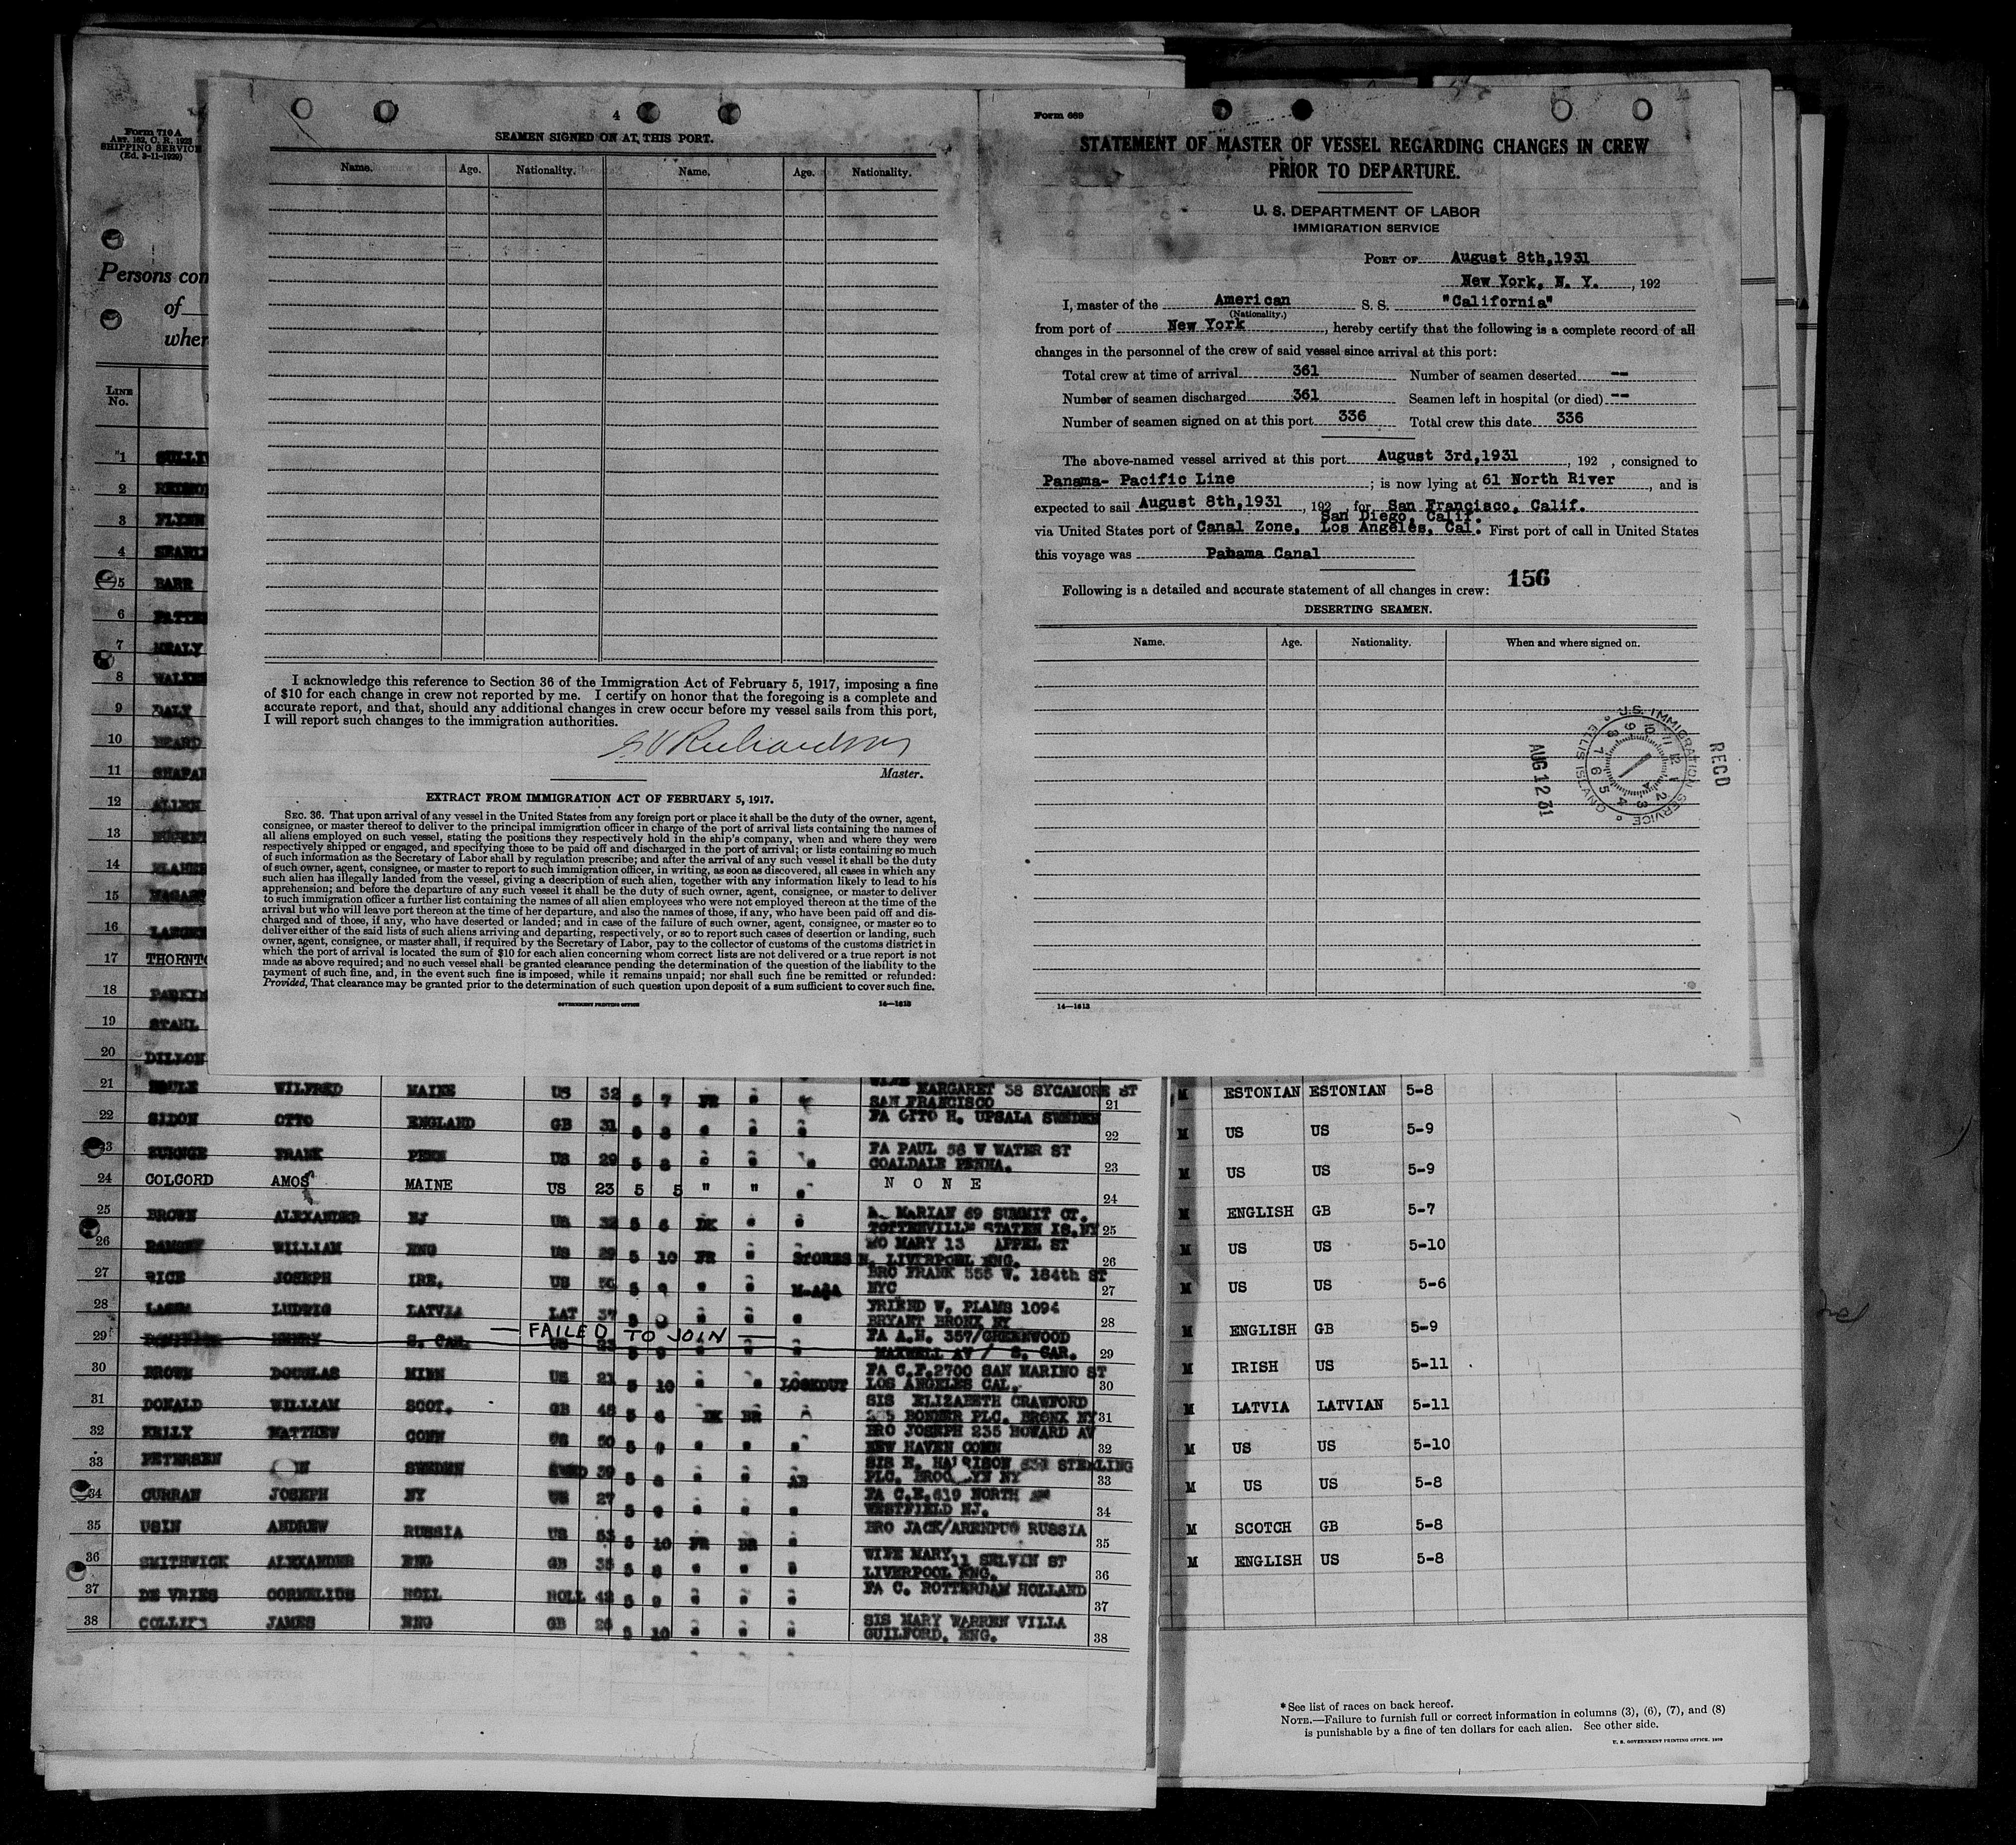 Form 710 A
ART. 162, C. R. 1923
SHIPPING SERVICE
(Ed. 3-11-1929)
Persons con
of
wher
LINE
No.
1 SULLIV
2 REDMON
3 FLYNN
4 SEARL
5 BARR
6 PATTE
7 NEALY
8 WALKE
9 DALY
10 BEARD
11 SHAPA
12 ALLEN
13
14
15
16
17 THORNTO
18 PARKIN
19 STAHL
20 DILLON
4
SEAMEN SIGNED ON AT THIS PORT.
Name. Age. Nationality. Name. Age. Nationality.
I acknowledge this reference to Section 36 of the Immigration Act of February 5, 1917, imposing a fine
of $10 for each change in crew not reported by me. I certify on honor that the foregoing is a complete and
accurate report, and that, should any additional changes in crew occur before my vessel sails from this port,
I will report such changes to the immigration authorities.
Richardson
Master.
EXTRACT FROM IMMIGRATION ACT OF FEBRUARY 5, 1917.
SEC. 36. That upon arrival of any vessel in the United States from any foreign port or place it shall be the duty of the owner, agent,
consignee, or master thereof to deliver to the principal immigration officer in charge of the port of arrival lists containing the names of
all aliens employed on such vessel, stating the positions they respectively hold in the ship's company, when and where they were
respectively shipped or engaged, and specifying those to be paid off and discharged in the port of arrival; or lists containing so much
of such information as the Secretary of Labor shall by regulation prescribe; and after the arrival of any such vessel it shall be the duty
of such owner, agent, consignee, or master to report to such immigration officer, in writing, as soon as discovered, all cases in which any
such alien has illegally landed from the vessel, giving a description of such alien, together with any information likely to lead to his
apprehension; and before the departure of any such vessel it shall be the duty of such owner, agent, consignee, or master to deliver
to such immigration officer a further list containing the names of all alien employees who were not employed thereon at the time of the
arrival but who will leave port thereon at the time of her departure, and also the names of those, if any, who have been paid off and dis-
charged and of those, if any, who have deserted or landed; and in case of the failure of such owner, agent, consignee, or master so to
deliver either of the said lists of such aliens arriving and departing, respectively, or so to report such cases of desertion or landing, such
owner, agent, consignee, or master shall, if required by the Secretary of Labor, pay to the collector of customs of the customs district in
which the port of arrival is located the sum of $10 for each alien concerning whom correct lists are not delivered or a true report is not
made as above required; and no such vessel shall be granted clearance pending the determination of the question of the liability to the
payment of such fine, and, in the event such fine is imposed, while it remains unpaid; nor shall such fine be remitted or refunded:
Provided, That clearance may be granted prior to the determination of such question upon deposit of a sum sufficient to cover such fine.
GOVERNMENT PRINTING OFFICE 14—1613
Form 689
STATEMENT OF MASTER OF VESSEL REGARDING CHANGES IN CREW
PRIOR TO DEPARTURE.
U. S. DEPARTMENT OF LABOR
IMMIGRATION SERVICE
PORT OF August 8th, 1931
New York, N. Y. , 192
I, master of the American S. S. "California"
(Nationality.)
from port of New York , hereby certify that the following is a complete record of all
changes in the personnel of the crew of said vessel since arrival at this port:
Total crew at time of arrival 361 Number of seamen deserted --
Number of seamen discharged 361 Seamen left in hospital (or died) --
Number of seamen signed on at this port 336 Total crew this date 336
The above-named vessel arrived at this port August 3rd, 1931 , 192 , consigned to
Panama- Pacific Line ; is now lying at 61 North River , and is
expected to sail August 8th, 1931 , 192 , for San Francisco, Calif.
San Diego, Calif.
via United States port of Canal Zone, Los Angeles, Cal. First port of call in United States
this voyage was Panama Canal
156
Following is a detailed and accurate statement of all changes in crew:
DESERTING SEAMEN.
Name. Age. Nationality. When and where signed on.
RECD
U.S. IMMIGRATION SERVICE
ELLIS ISLAND
AUG 12 31
14—1613
21 WILFRED MAINE US 32 5 7 FR " WIFE MARGARET 38 SYCAMORE ST
SAN FRANCISCO 21
22 SIDON OTTO ENGLAND GB 31 5 8 " " " FA OTTO H. UPSALA SWEDEN 22
23 FRANK PENN US 29 5 8 " " " FA PAUL 58 W WATER ST
COALDALE PENNA. 23
24 COLCORD AMOS MAINE US 23 5 5 " " " N O N E 24
25 BROWN ALEXANDER NJ US 32 5 6 DK " " MARIAN 69 SUMMIT CT.
TOTTENVILLE STATEN IS. NY 25
26 RAMSEY WILLIAM ENG US 29 5 10 FR " STORES MO MARY 13 APPEL ST
N. LIVERPOOL ENG. 26
27 RICE JOSEPH IRE. US 50 5 9 " " M-A@A BRO FRANK 555 W. 184th ST
NYC 27
28 LUDWIG LATVIA LAT 37 5 9 " " " FRIEND W. PLAMS 1094
BRYANT BRONX NY 28
— FAILED TO JOIN —
29 HENRY S. CAR. US 23 5 9 " " " FA A.H. 357/GREENWOOD
MAXWELL AV / S. CAR. 29
30 BROWN DOUGLAS MINN US 21 5 10 " " LOOKOUT FA C.F. 2700 SAN MARINO ST
LOS ANGELES CAL. 30
31 DONALD WILLIAM SCOT. GB 48 5 6 DK BR " SIS ELIZABETH CRAWFORD
BONNER PLC. BRONX NY 31
32 KELLY MATTHEW CONN US 50 5 9 " " " BRO JOSEPH 235 HOWARD AV
NEW HAVEN CONN 32
33 PETERSEN SWEDEN SWED 39 5 8 " " AB SIS E. HARRISON STERLING
PLC. BROOKLYN NY 33
34 CURRAN JOSEPH NY US 27 5 9 " " " FA C.E. 619 NORTH
WESTFIELD NJ. 34
35 USIN ANDREW RUSSIA US 53 5 10 FR BR " BRO JACK/ARENPUG RUSSIA 35
36 SMITHWICK ALEXANDER ENG GB 35 5 8 " " " WIFE MARY 11 SELVIN ST
LIVERPOOL ENG. 36
37 DE VRIES CORNELIUS HOLL HOLL 42 5 9 " " " FA C. ROTTERDAM HOLLAND 37
38 COLLINS JAMES ENG GB 26 5 10 " " " SIS MARY WARREN VILLA
GUILFORD. ENG. 38
M ESTONIAN ESTONIAN 5-8
M US US 5-9
M US US 5-9
M ENGLISH GB 5-7
M US US 5-10
M US US 5-6
M ENGLISH GB 5-9
M IRISH US 5-11
M LATVIA LATVIAN 5-11
M US US 5-10
M US US 5-8
M SCOTCH GB 5-8
M ENGLISH US 5-8
* See list of races on back hereof.
NOTE.—Failure to furnish full or correct information in columns (3), (6), (7), and (8)
is punishable by a fine of ten dollars for each alien. See other side.
U. S. GOVERNMENT PRINTING OFFICE. 1929